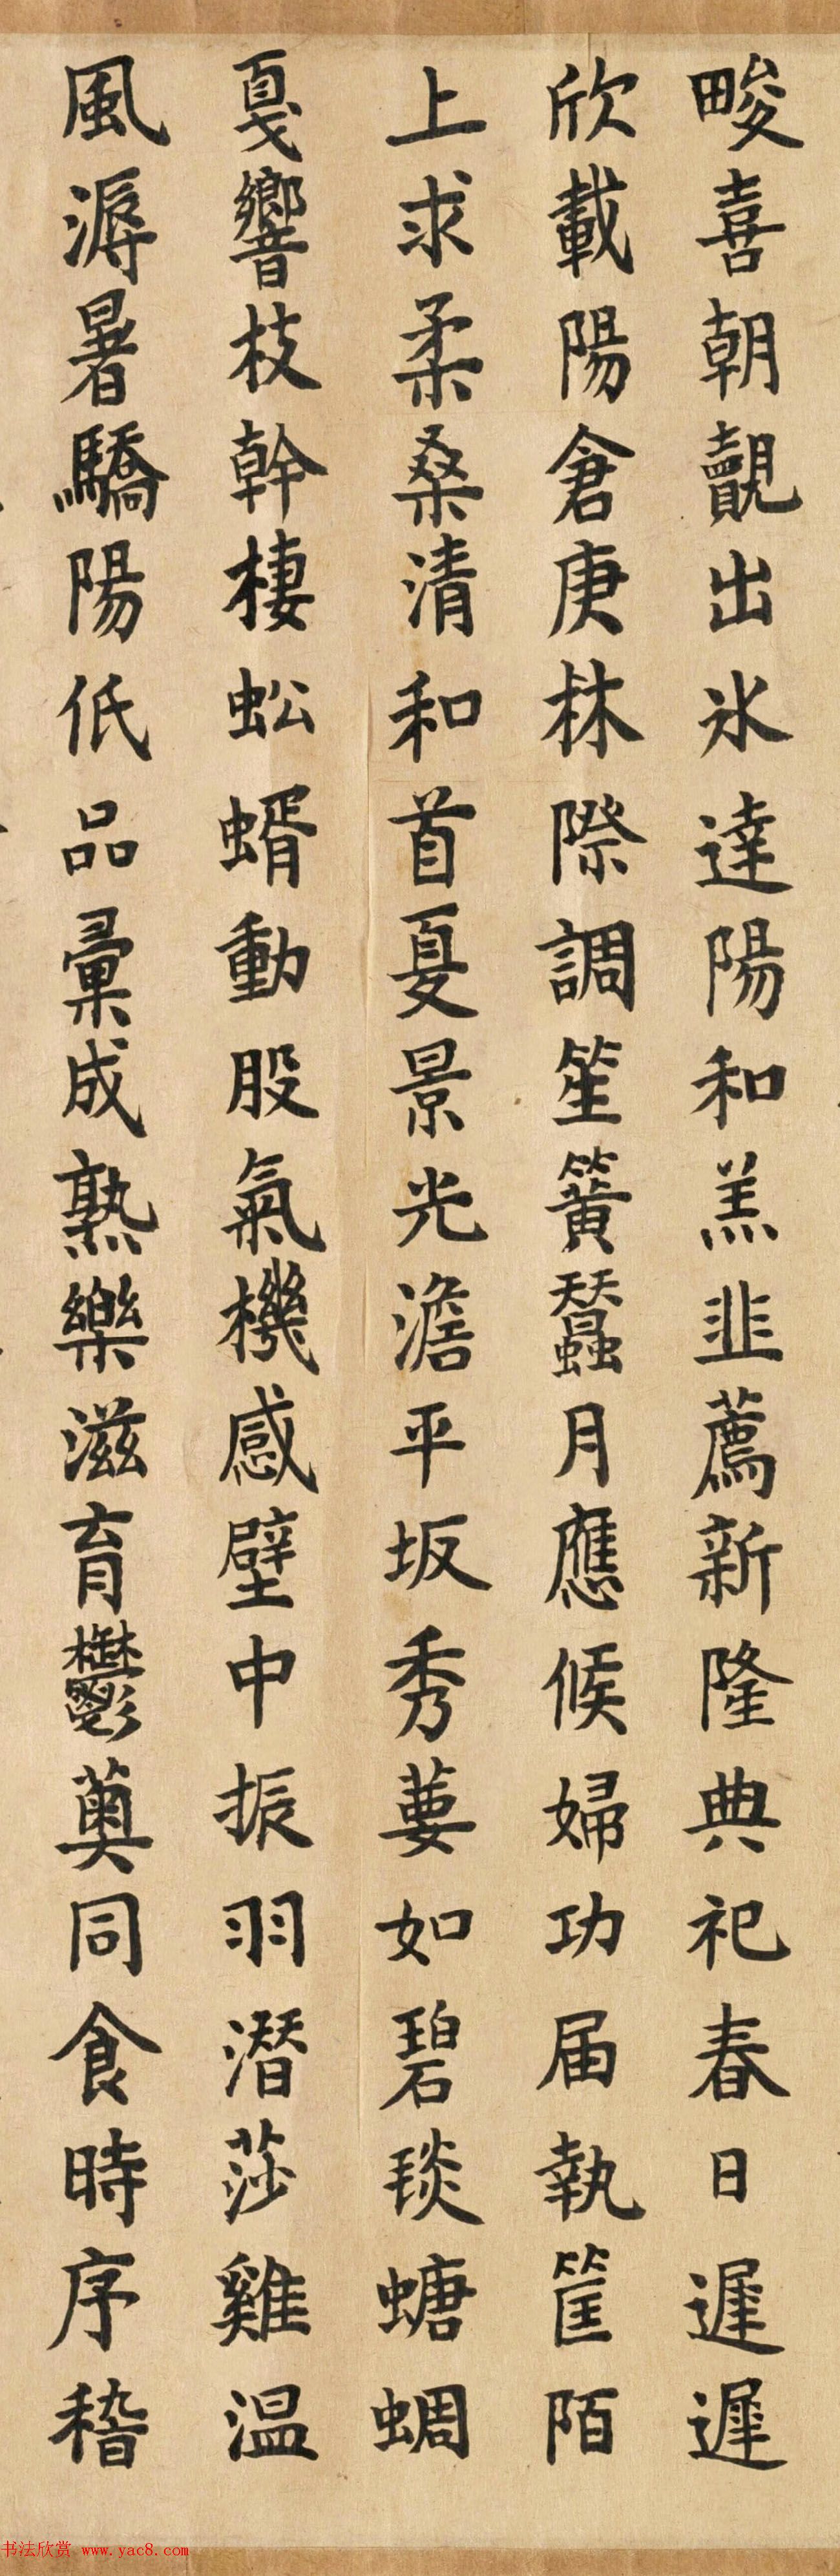 畯喜朝覿出冰達陽和羔韭薦新隆典祀春日遲遲
欣載陽倉庚林際調笙簧蠶月應候婦功届執筐陌
上求柔桑清和首夏景光澹平坂秀葽如碧琰螗蜩
戛響枝幹棲蚣蝑動股氣機感壁中振羽潛莎雞温
風溽暑驕陽低品彙成熟樂滋育鬱薁同食時序稽
书法欣赏 www.yac8.com